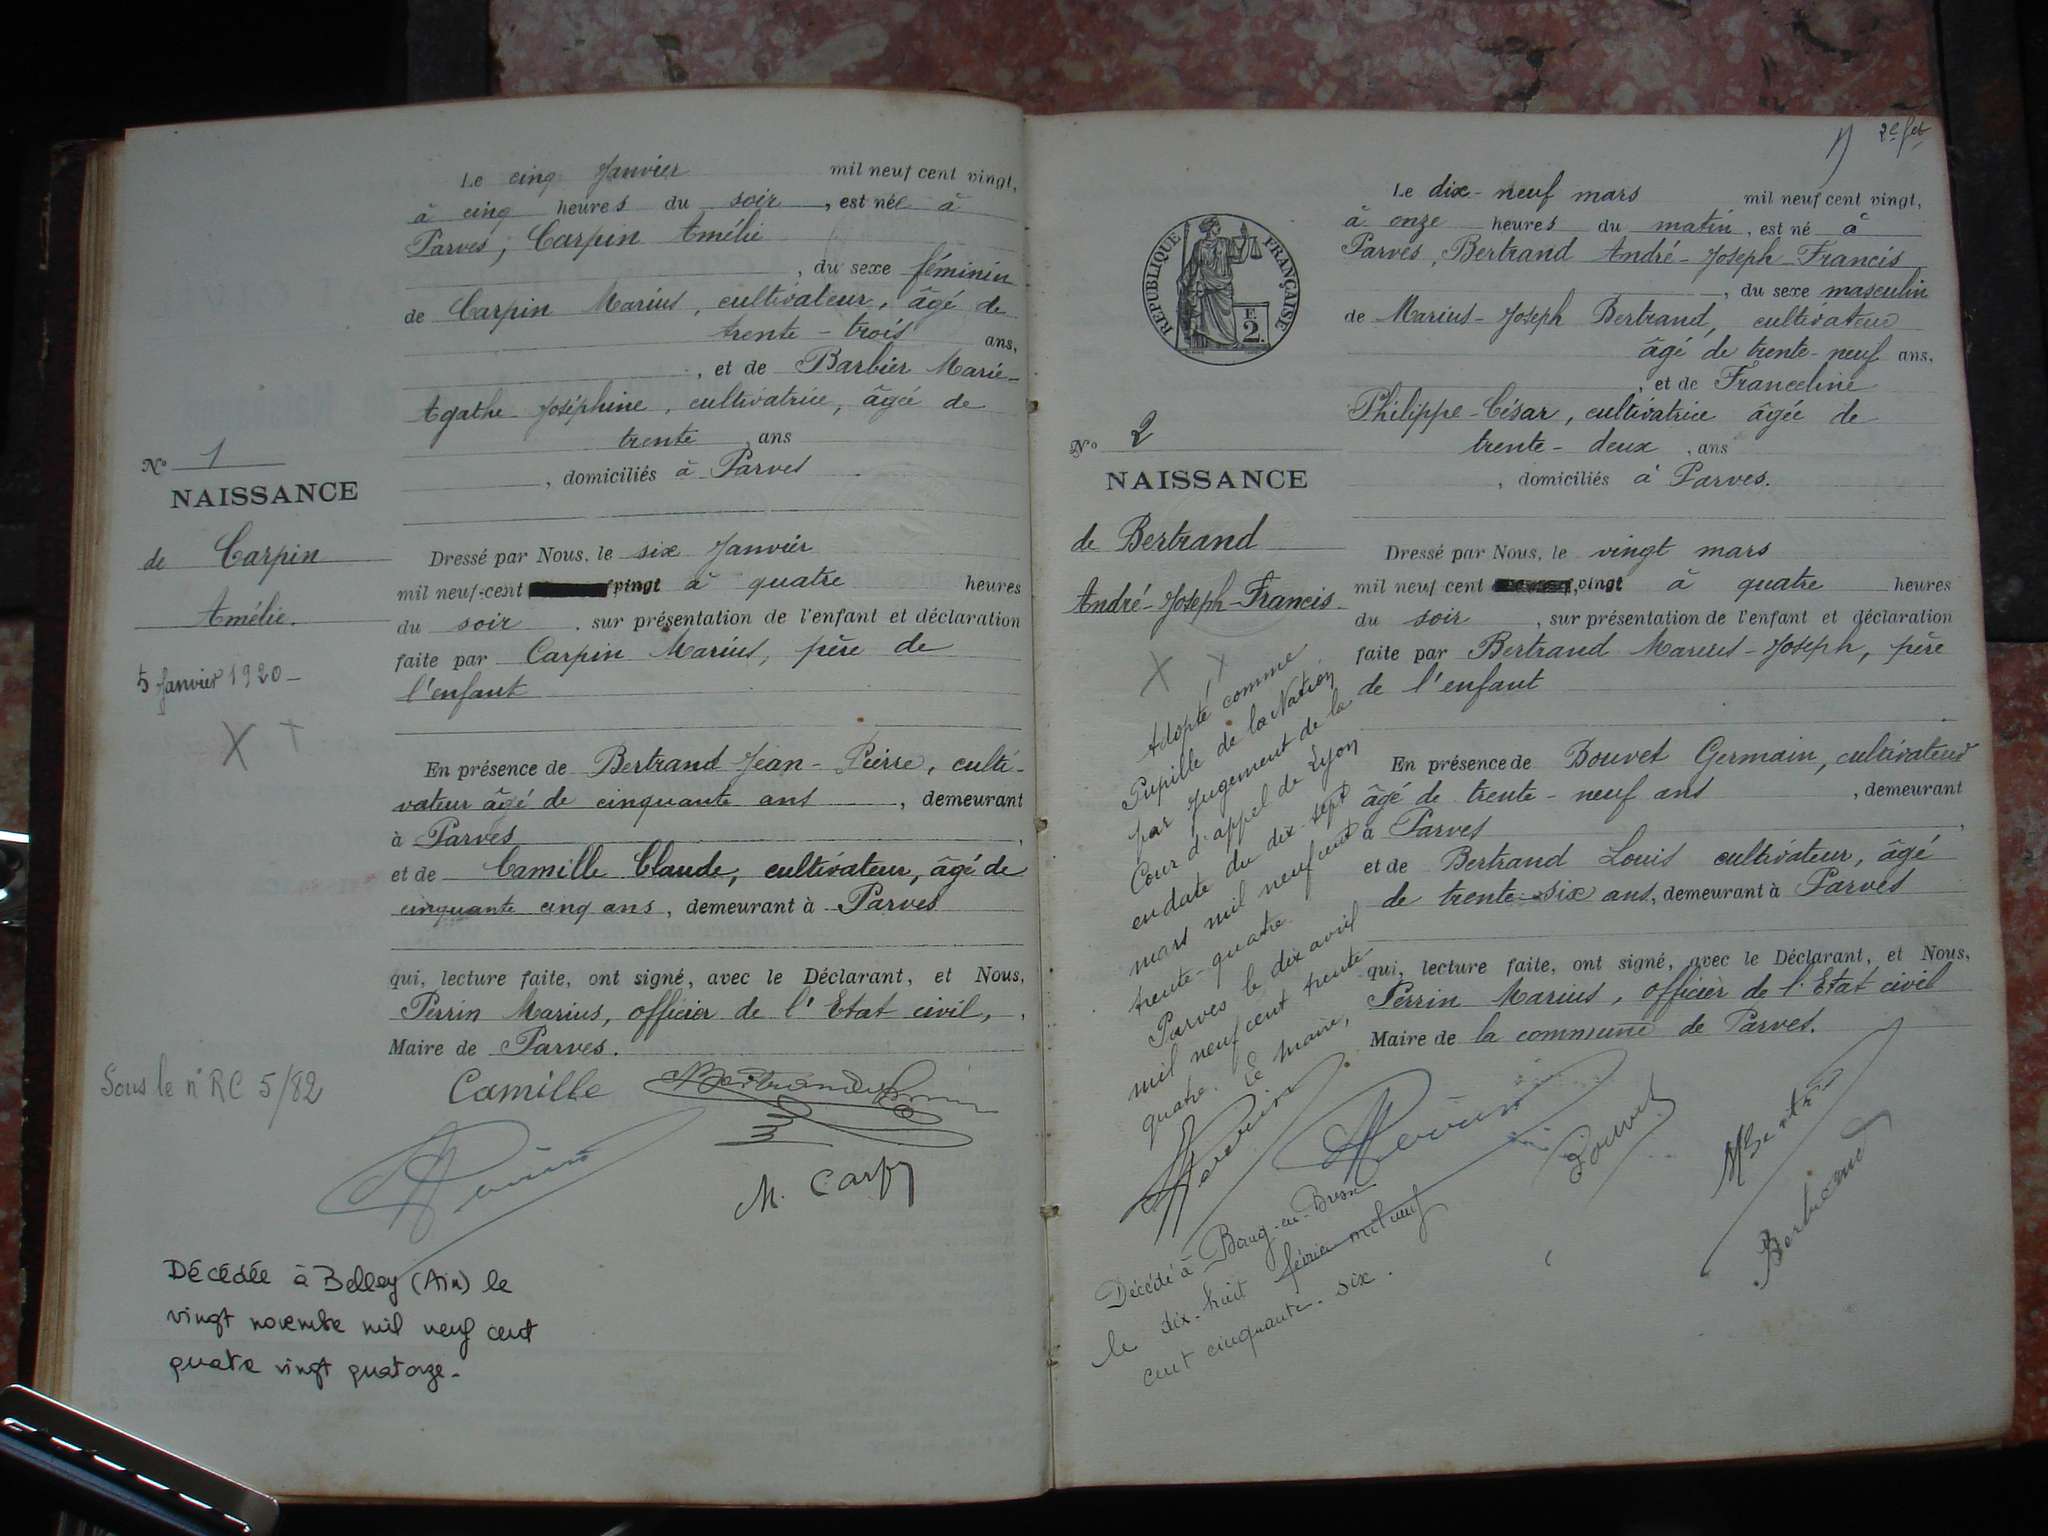 Le cinq Janvier mil neuf cent vingt,
à cinq heures du soir, est née à
Parves, Carpin Amélie
, du sexe féminin
de Carpin Marius, cultivateur, âgé de
trente-trois ans,
, et de Barbier Marie-
Agathe Joséphine, cultivatrice, âgée de
trente ans
, domiciliés à Parves
N° 1
NAISSANCE
de Carpin
Amélie.
5 Janvier 1920 -
Dressé par Nous, le six Janvier
mil neuf-cent vingt à quatre heures
du soir, sur présentation de l'enfant et déclaration
faite par Carpin Marius, père de
l'enfant
En présence de Bertrand Jean-Pierre, culti-
vateur âgé de cinquante ans, demeurant
à Parves
et de Camille Claude, cultivateur, âgé de
cinquante cinq ans, demeurant à Parves
qui, lecture faite, ont signé, avec le Déclarant, et Nous,
Perrin Marius, officier de l'Etat civil,
Maire de Parves.
Sous le n° RC 5/82
Camille
M. Carp
Décédée à Belley (Ain) le
vingt novembre mil neuf cent
quatre vingt quatorze.
2e fet
REPUBLIQUE FRANÇAISE
F.
2.
Le dix-neuf mars mil neuf cent vingt,
à onze heures du matin, est né à
Parves, Bertrand André-Joseph-Francis
, du sexe masculin
de Marius-Joseph Bertrand, cultivateur
âgé de trente-neuf ans,
, et de Franceline
Philippe-César, cultivatrice âgée de
trente-deux, ans
, domiciliés à Parves.
N° 2
NAISSANCE
de Bertrand
André-Joseph-Francis
Dressé par Nous, le vingt mars
mil neuf cent vingt à quatre heures
du soir, sur présentation de l'enfant et déclaration
faite par Bertrand Marius-Joseph, père
de l'enfant
En présence de Bouvet Germain, cultivateur
âgé de trente-neuf ans, demeurant
à Parves
et de Bertrand Louis cultivateur, âgé
de trente-six ans, demeurant à Parves
qui, lecture faite, ont signé, avec le Déclarant, et Nous,
Perrin Marius, officier de l'Etat civil
Maire de la commune de Parves.
Adopté comme
Pupille de la Nation
par Jugement de la
Cour d'appel de Lyon
en date du dix-sept
mars mil neuf cent
trente-quatre
Parves le dix avril
mil neuf cent trente-
quatre. Le Maire,
Bouvet
Bertrand
Décédé à Bourg-en-Bresse
le dix-huit février mil neuf
cent cinquante-six.